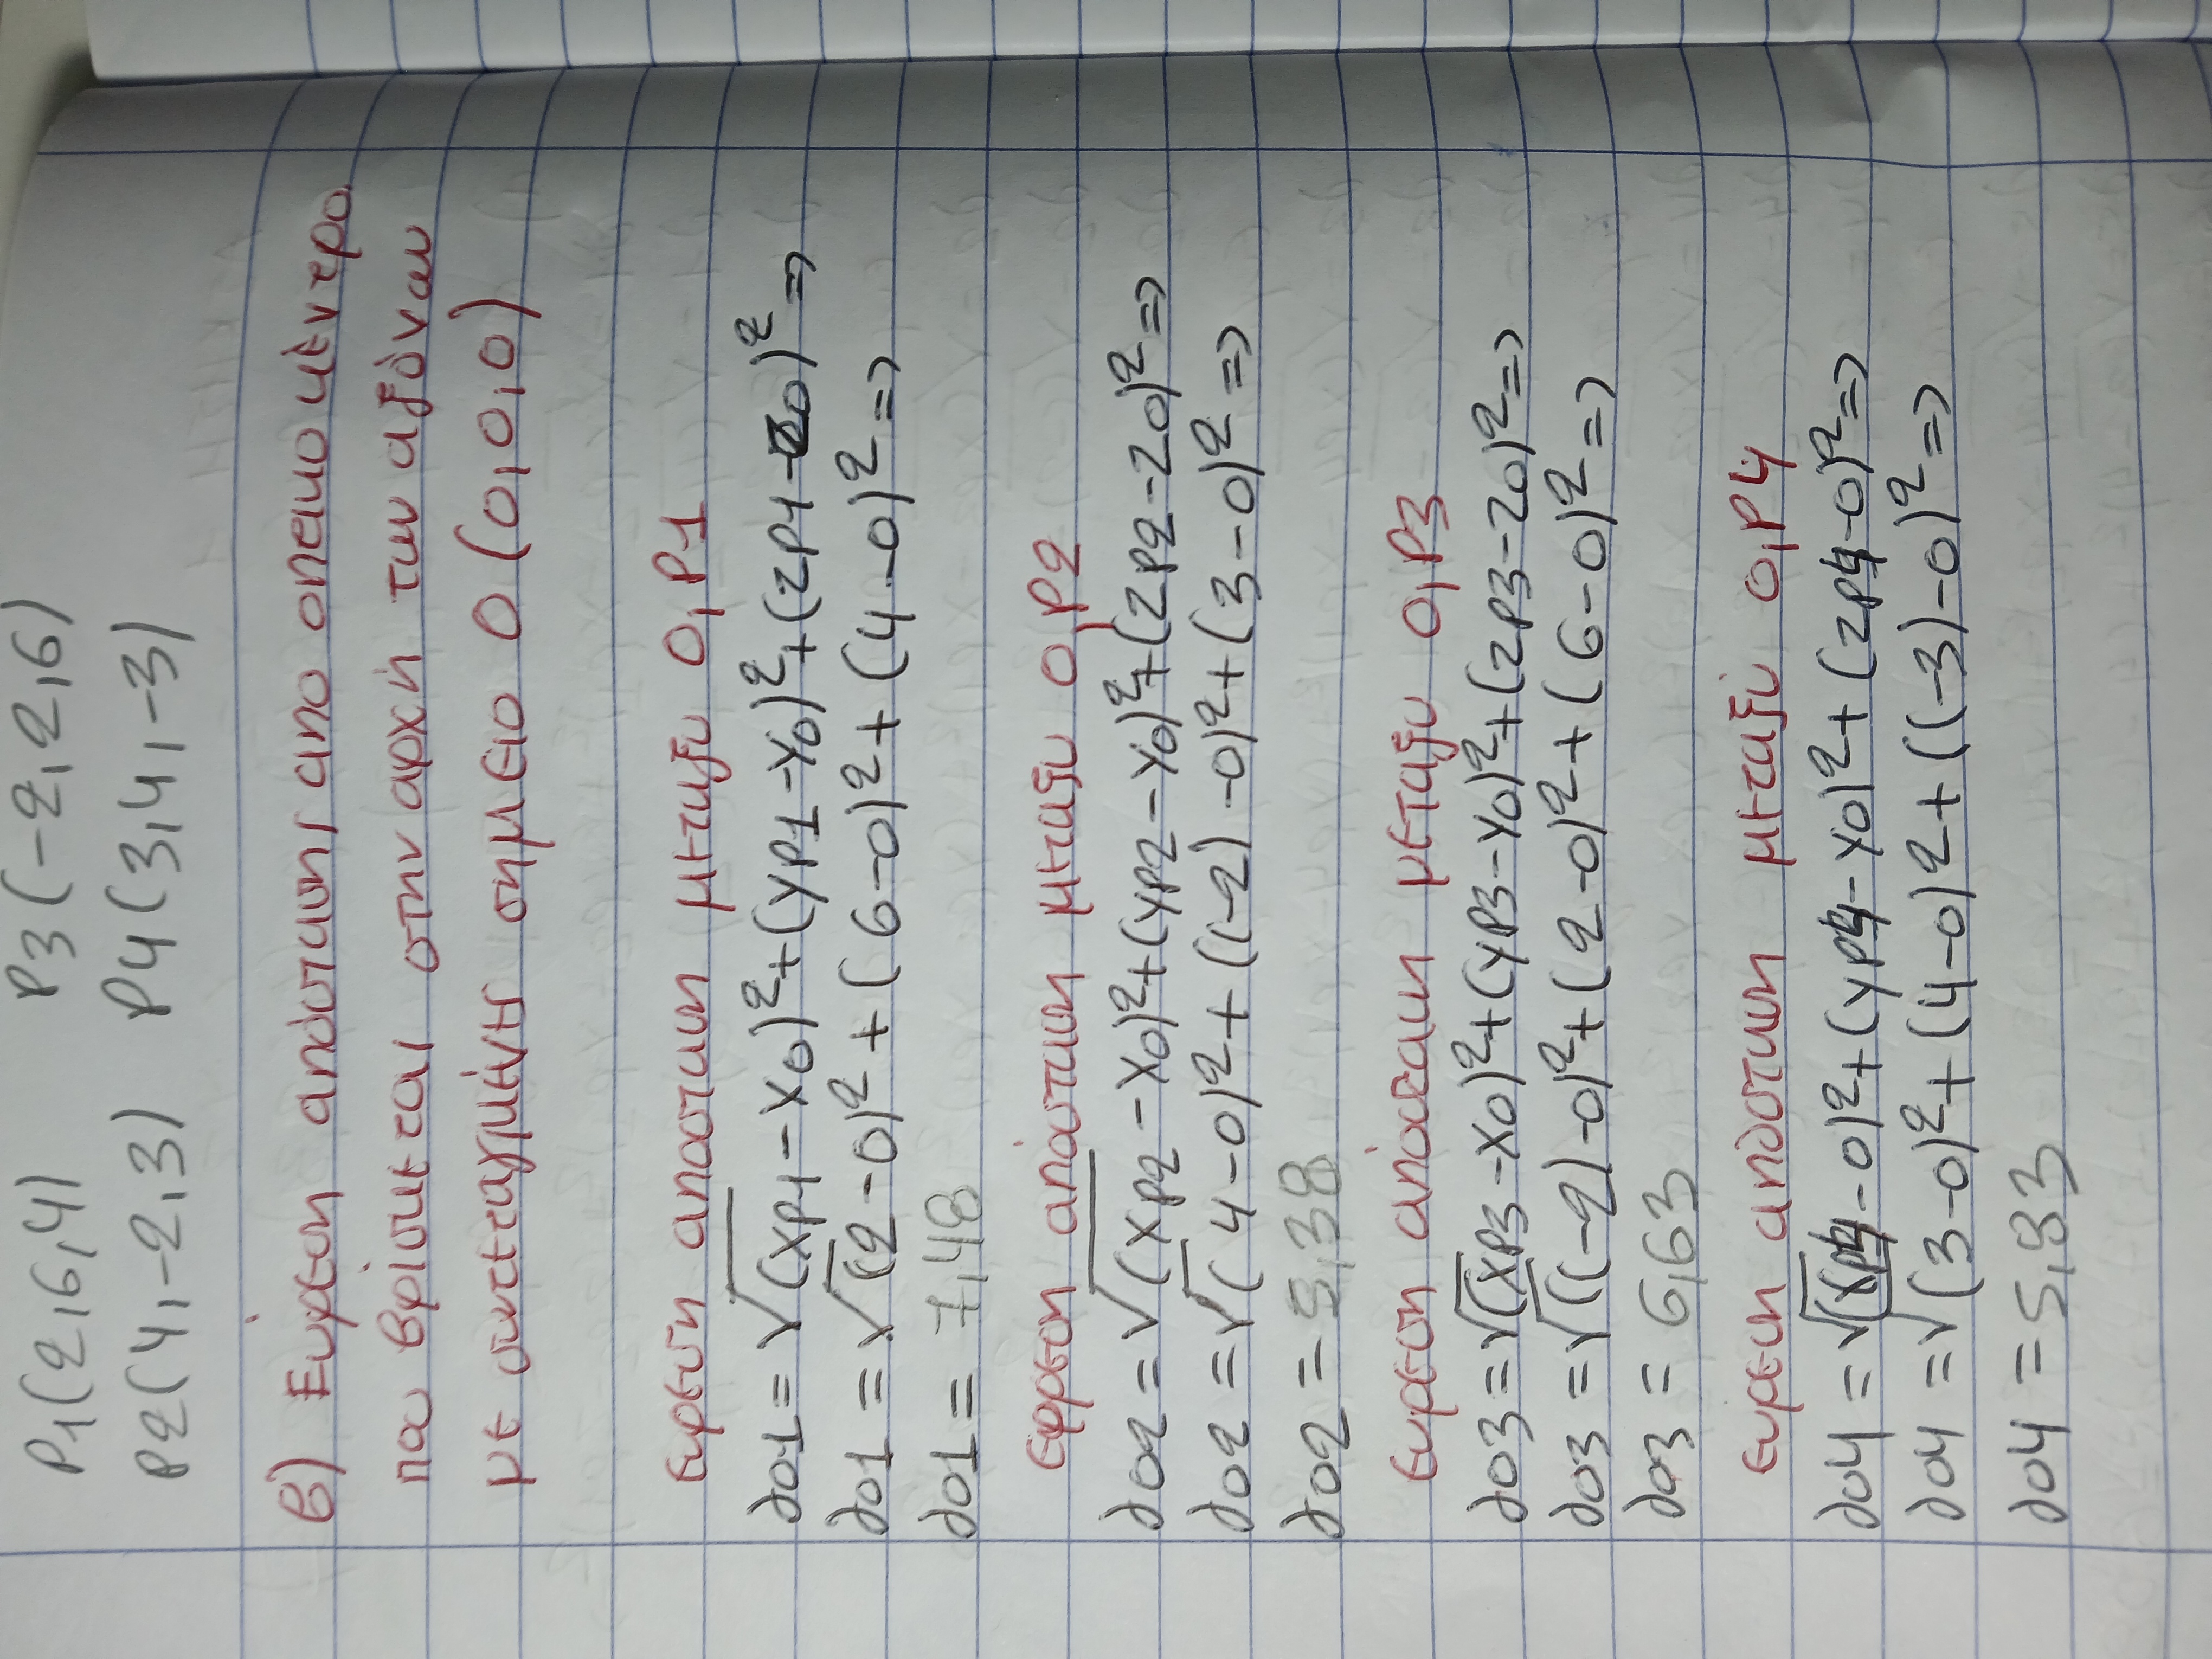 P1(2,6,4) P3(-2,2,6)
P2(4,-2,3) P4(3,4,-3)
β) Ευρεση απόστασης απο οπτικο κέντρο
που βρίσκεται στην αρχή των αξόνων
με συντεταγμένες σημειο Ο (0,0,0)
ευρεση αποσταση μεταξυ 0,P1
d01 = √(xp1-x0)²+(yp1-y0)²+(zp1-z0)² =>
d01 = √(2-0)²+(6-0)²+(4-0)² =>
d01 = 7,48
ευρεση απόσταση μεταξυ 0,P2
d02 = √(xp2-x0)²+(yp2-y0)²+(zp2-z0)² =>
d02 = √(4-0)²+((-2)-0)²+(3-0)² =>
d02 = 5,38
ευρεση απόσταση μεταξυ 0,P3
d03 = √(xp3-x0)²+(yp3-y0)²+(zp3-z0)² =>
d03 = √((-2)-0)²+(2-0)²+(6-0)² =>
d03 = 6,63
ευρεση απόσταση μεταξύ 0,P4
d04 = √(xp4-0)²+(yp4-y0)²+(zp4-0)² =>
d04 = √(3-0)²+(4-0)²+((-3)-0)² =>
d04 = 5,83